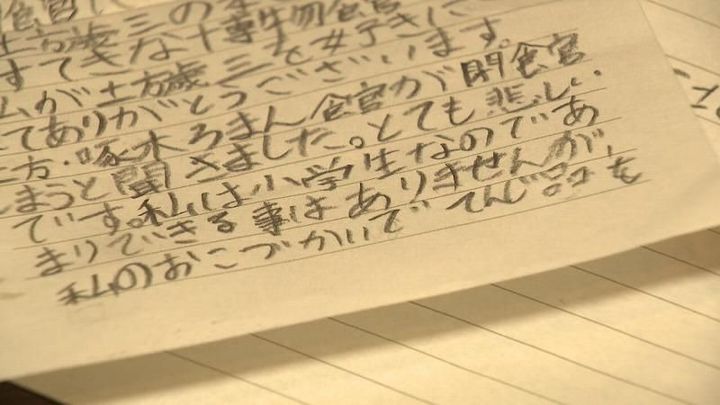 土方歳三の
すてきな博物館
が土方歳三を好きに
てありがとうございます。
方・啄木ろまん館が閉館
まうと聞きました。とても悲しい
です。私は小学生なのであ
まりできる事はありませんが、
私のおこづかいでてんじ品を